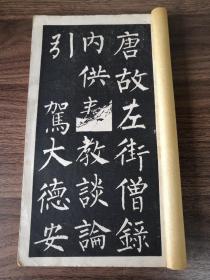 唐故左街僧錄
内供奉
教談論
引 駕大德安